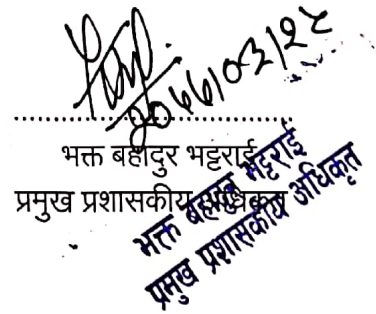 ................................
भक्त बहादुर भट्टराई
प्रमुख प्रशासकीय अधिकृत
भक्त बहादुर भट्टराई
प्रमुख प्रशासकीय अधिकृत